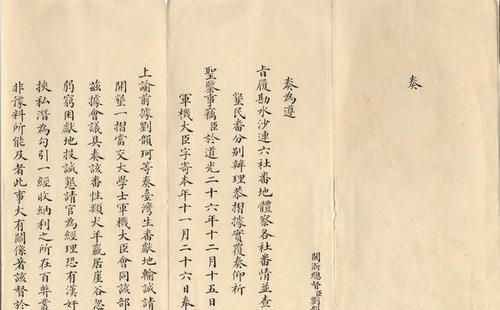 奏
閩浙總督臣劉韻
奏為遵
旨履勘水沙連六社番地體察各社番情並查
墾民番分別辦理恭摺據實覆奏仰祈
聖鑒事竊臣於道光二十六年十二月十五日
軍機大臣字寄本年十一月二十六日奉
上諭前據劉韻珂等奏臺灣生番獻地輸誠請
開墾一摺當交大學士軍機大臣會同該部
茲據會議具奏該番性類犬羊羸居崖谷忽
弱窮困獻地投誠懇請官為經理恐有漢奸
挾私潛為勾引一經收納利之所在百弊叢
非豫料所能及者此事大有關係著該督於